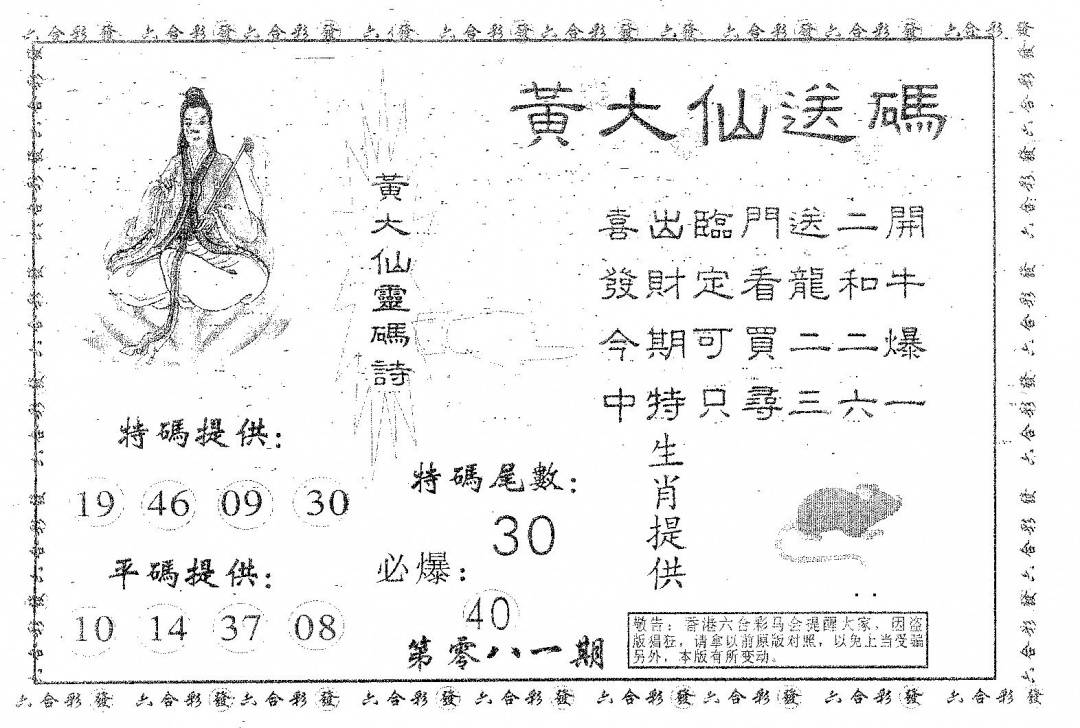 六合彩發 六合彩發六合彩發 六發 六合彩發六合彩發 六發 六合彩發六合彩發 六合彩發
黃大仙送碼
黃大仙靈碼詩
喜出臨門送二開
發財定看龍和牛
今期可買二二爆
中特只尋三六一
特碼提供:
19 46 09 30
平碼提供:
10 14 37 08
特碼尾數:
30
必爆:
40
第零八一期
生肖提供
敬告:香港六合彩马会提醒大家,因盗
版猖狂,请拿以前原版对照,以免上当受骗
另外,本版有所变动。
六合彩發 六合彩發六合彩發 六合彩發六合彩發 六合彩發六合彩發 六合彩發 六合彩發